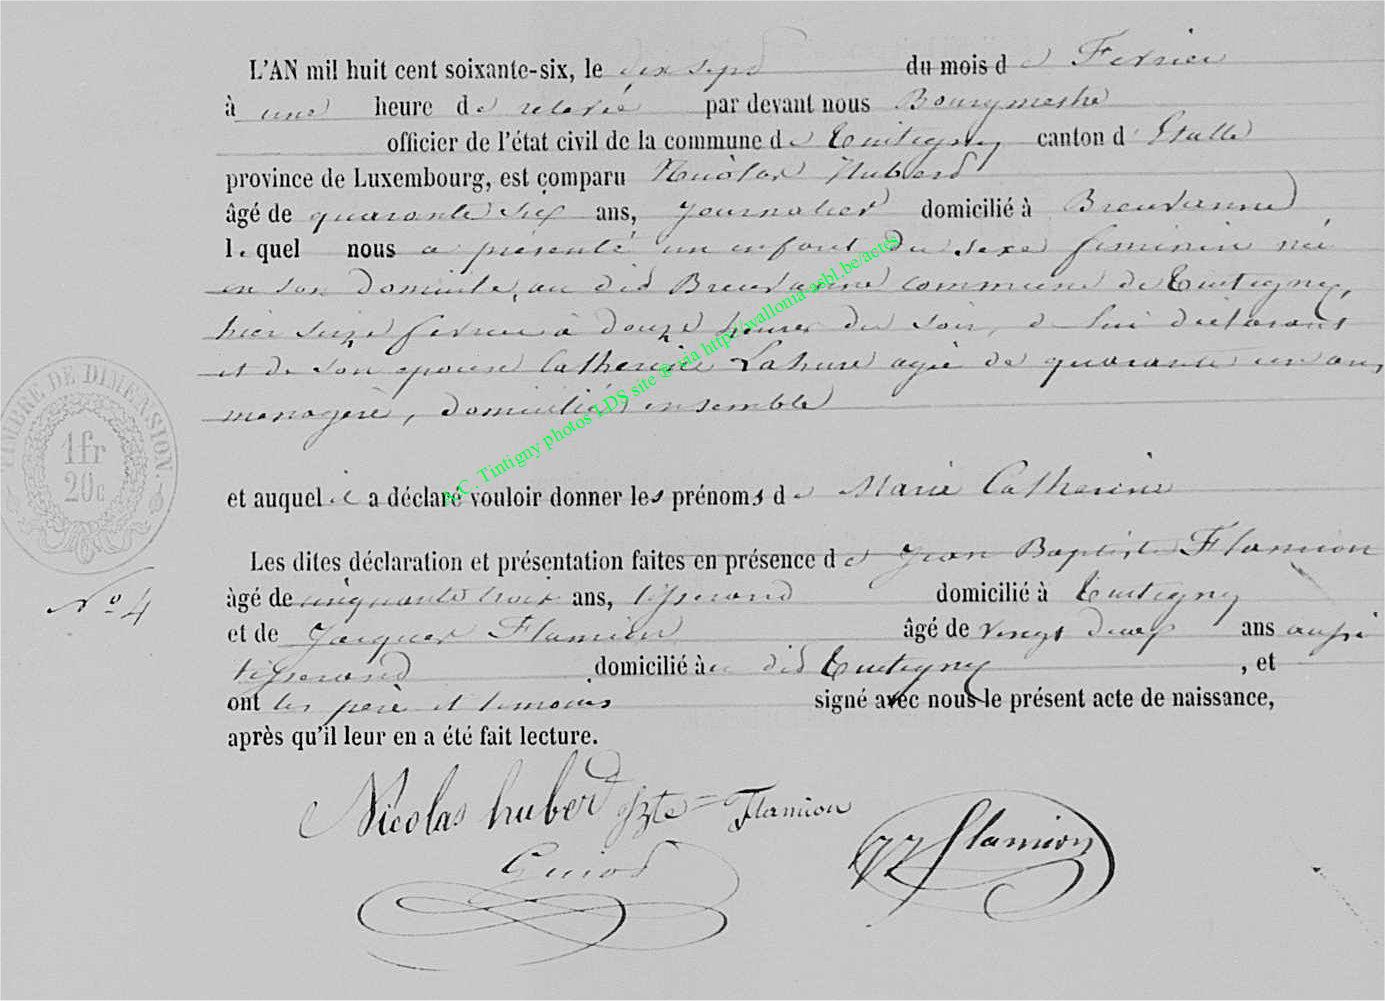 L'AN mil huit cent soixante-six, le dix sept du mois de Fevrier
à une heure de relevée par devant nous Bourgmestre
officier de l'état civil de la commune de Tintigny canton d'Etalle
province de Luxembourg, est comparu Nicolas Hubert
âgé de quarante six ans, journalier domicilié à Breuvanne,
lequel nous a présenté un enfant du sexe feminin née
en son domicile, au dit Breuvanne commune de Tintigny,
hier seize fevrier à douze heures du soir, de lui déclarant
et de son epouse Catherine Lahure agée de quarante un ans,
menagère, domiciliés ensemble
et auquel il a déclaré vouloir donner les prénoms de Marie Catherine
Les dites déclaration et présentation faites en présence de Jean Baptiste Flamion
âgé de cinquante trois ans, tisserand domicilié à Tintigny
et de Jacques Flamion âgé de vingt deux ans aussi
tisserand domicilié au dit Tintigny, et
ont les père et temoins signé avec nous le présent acte de naissance,
après qu'il leur en a été fait lecture.
Nicolas huber Flamion
JJ flamion
Guiot
N° 4
TIMBRE DE DIMENSION
1 fr
20 c
A.C. Tintigny photos LDS site ® via http://wallonia-asbl.be/actes